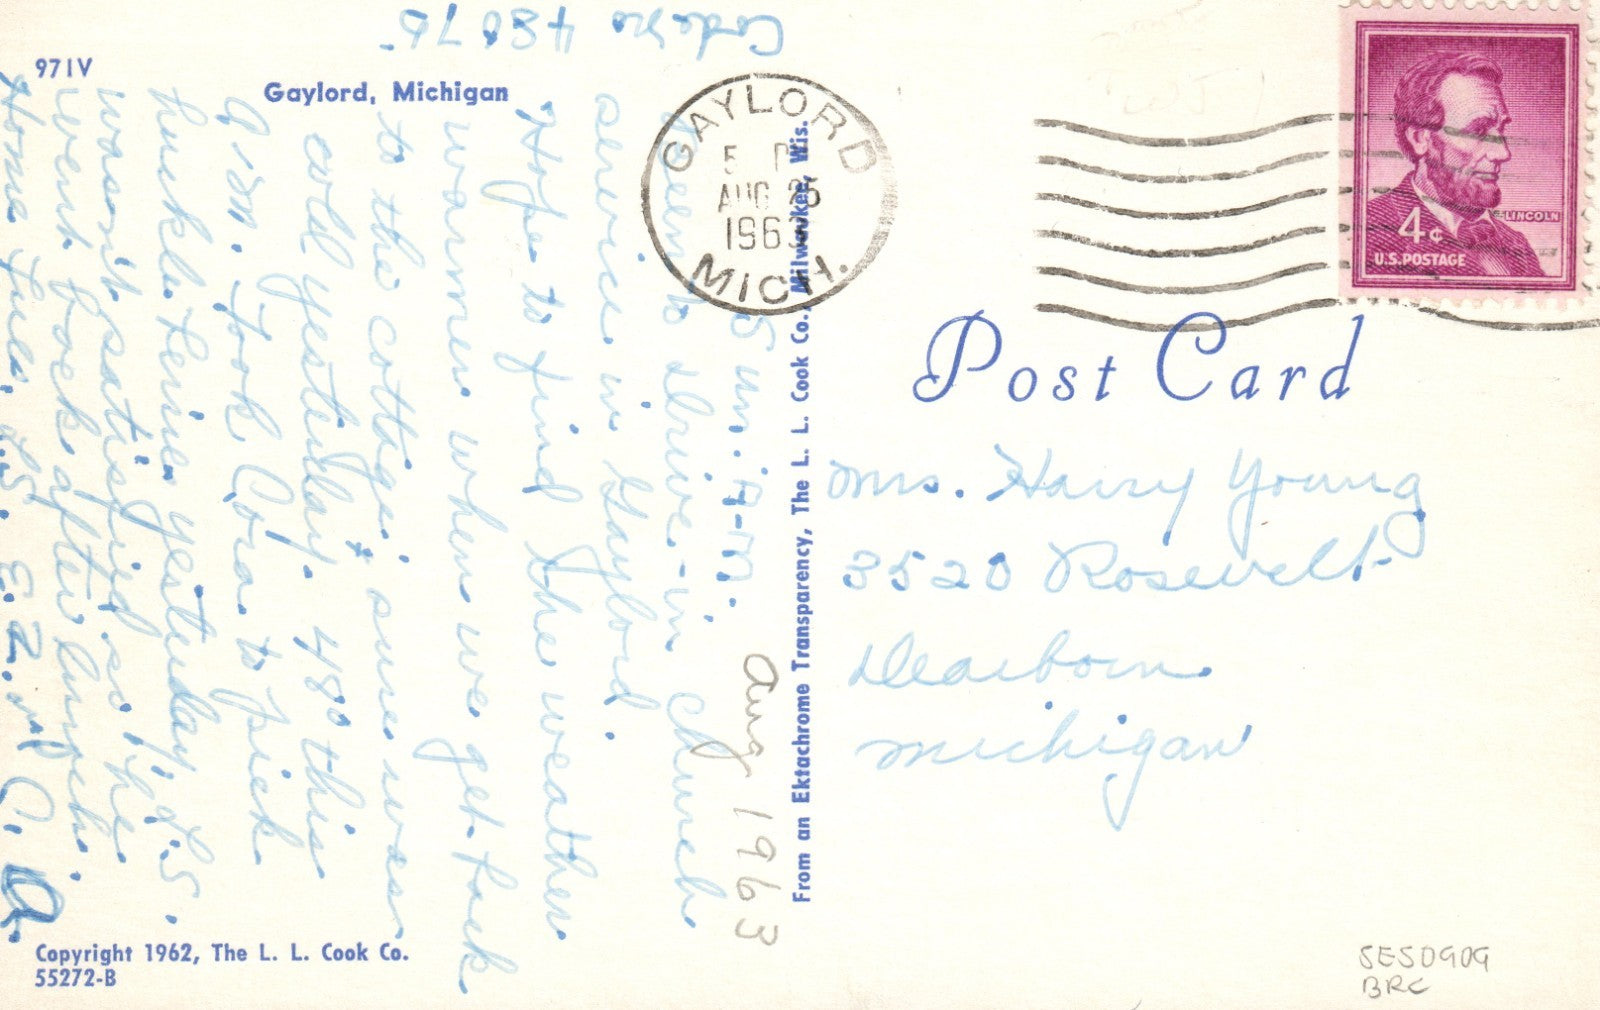 971V
Gaylord, Michigan
GAYLORD
5 P
AUG 25
1963
MICH.
LINCOLN
4¢
U.S. POSTAGE
Post Card
Mrs. Harry Young
3520 Rosevelt
Dearborn
Michigan
From an Ektachrome Transparency, The L. L. Cook Co., Milwaukee, Wis.
Aug 1963
Been to drive-in church
service in Gaylord.
Hope to find the weather
warmer when we get back
to the cottage; sure was
cold yesterday. 48° this
A.M. Took Cora to pick
huckleberries yesterday. L.S.
wasn't satisfied so he
went back after lunch.
Home Tues. L.S. E.Z. M.C. A.
Copyright 1962, The L. L. Cook Co.
55272-B
SES0909
BRC